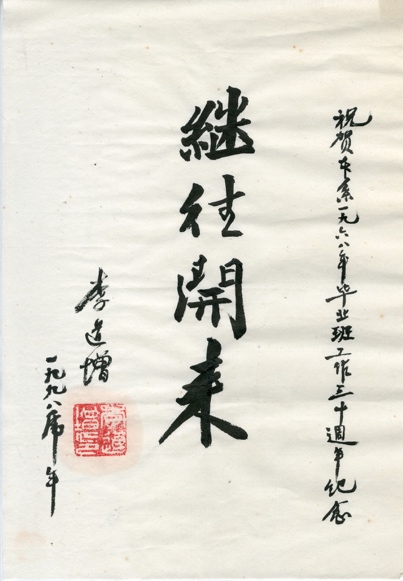 祝贺本系一九六八年毕业班工作三十週年纪念
継往開来
李道增
一九九八虎年
李道增印